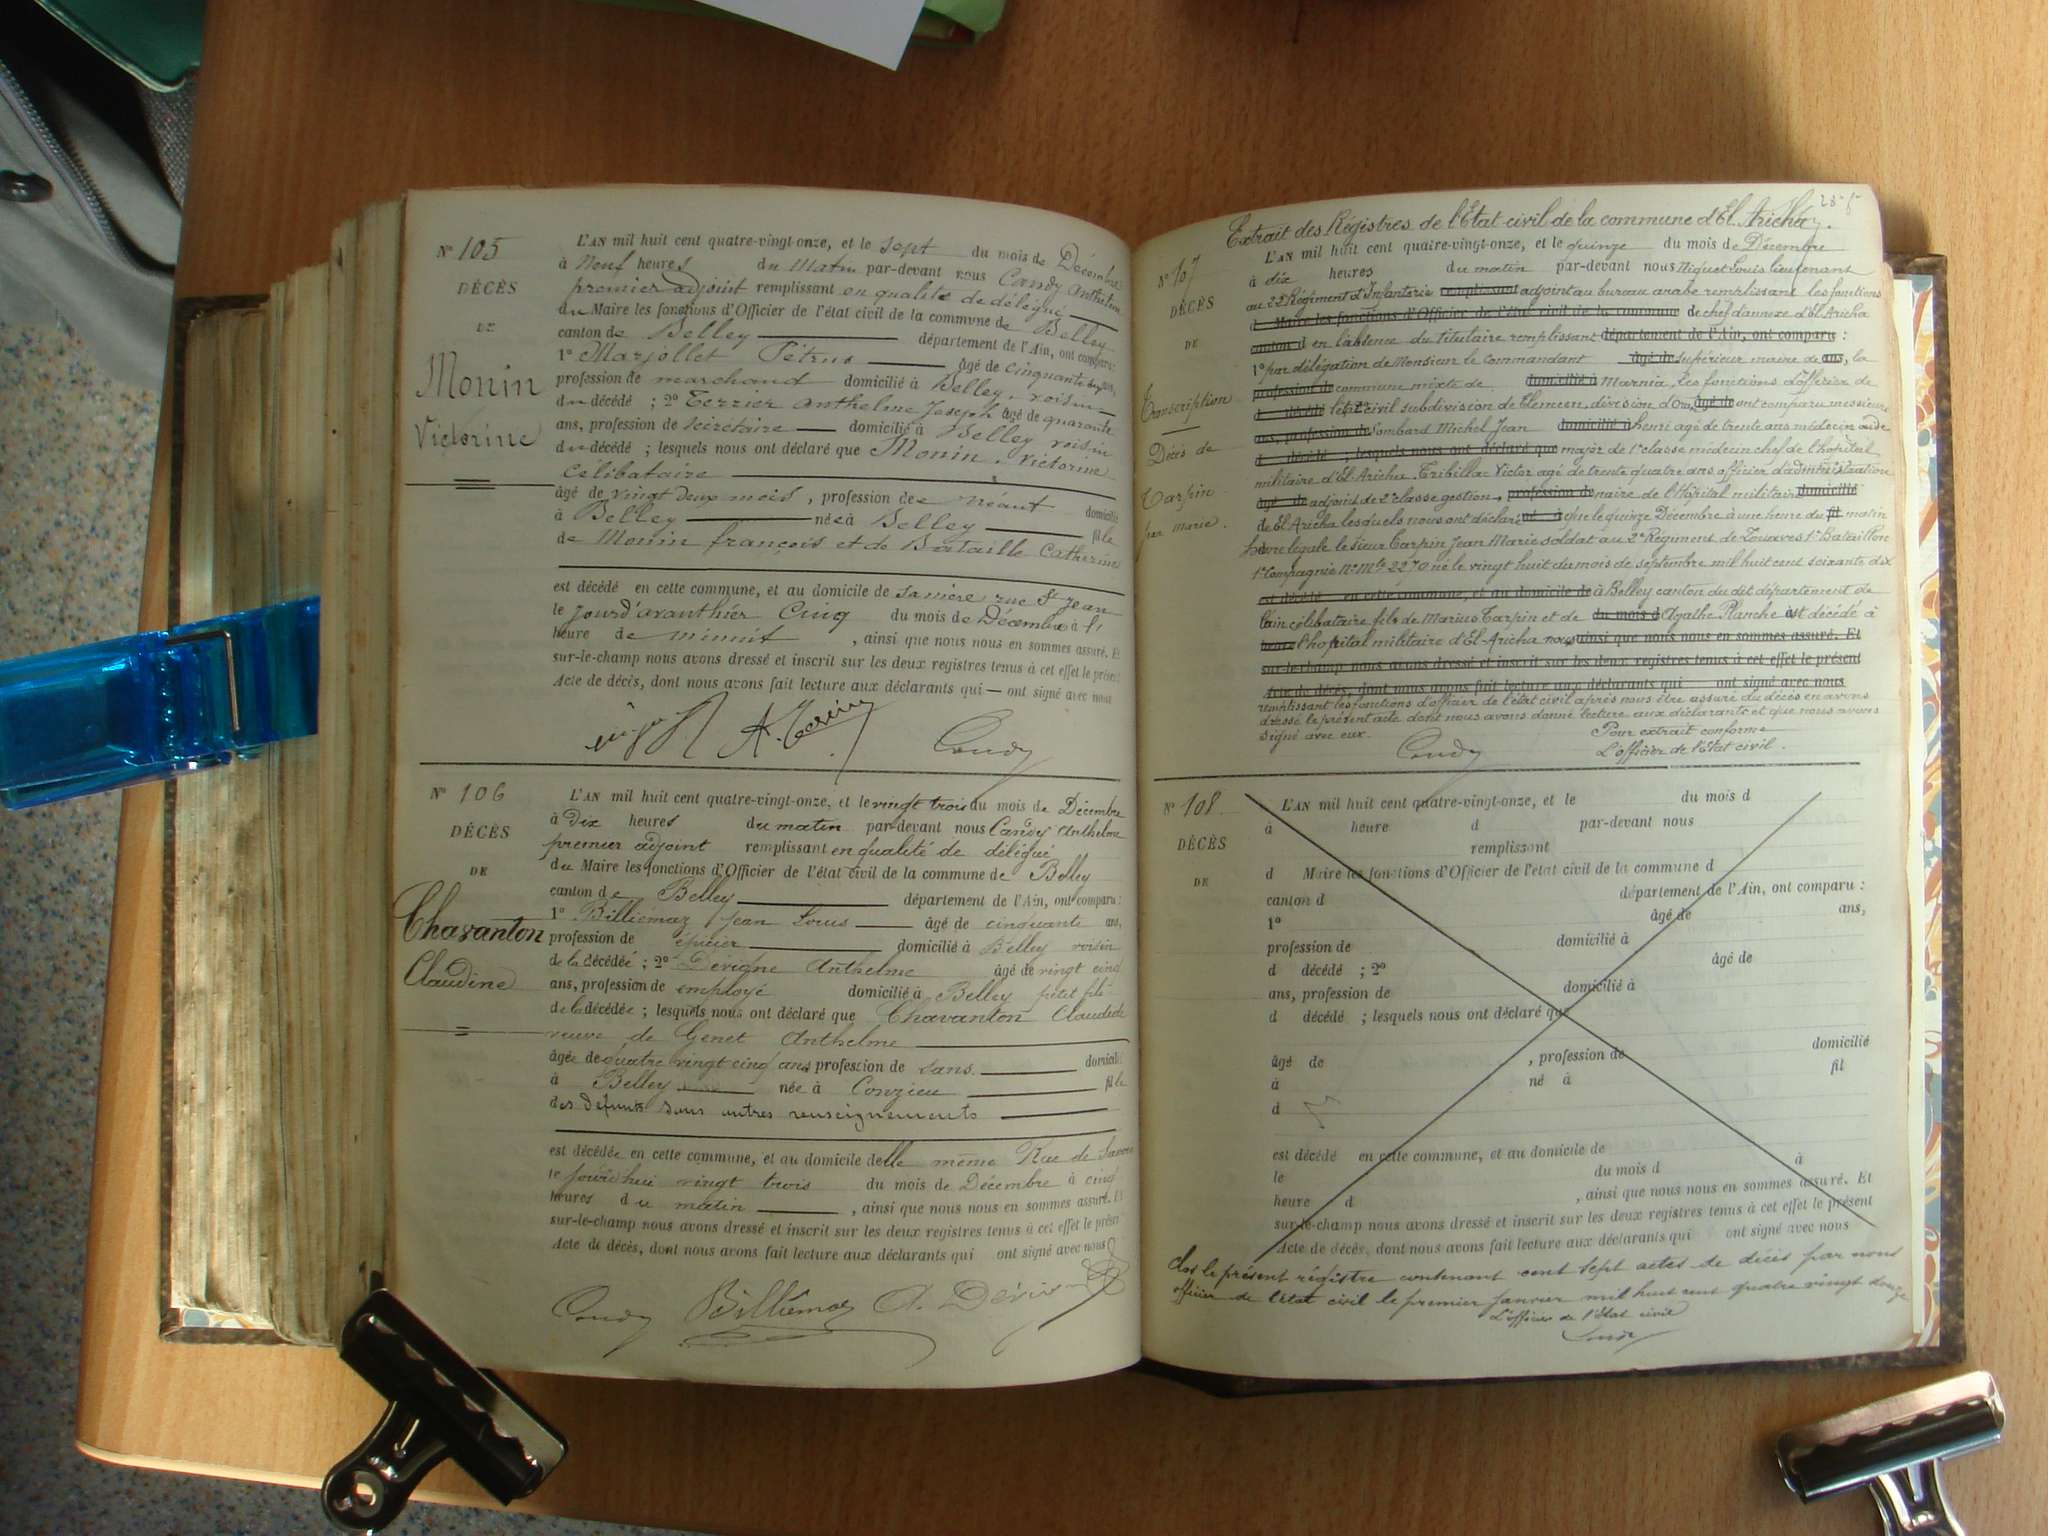 N° 105
DÉCÈS
DE
Monin
Victorine
L'AN mil huit cent quatre-vingt-onze, et le sept du mois de Décembre
à Neuf heures du Matin par-devant nous Candy Anthelme
premier adjoint remplissant en qualité de délégué
du Maire les fonctions d'Officier de l'état civil de la commune de Belley
canton de Belley département de l'Ain, ont comparu :
1° Marjollet Pétrus âgé de cinquante ans,
profession de marchand domicilié à Belley, voisin
du décédé ; 2° Terrier Anthelme Joseph âgé de quarante
ans, profession de secrétaire domicilié à Belley voisin
du décédé ; lesquels nous ont déclaré que Monin, Victorine
Célibataire
âgé de vingt deux mois, profession de néant domicilié
à Belley née à Belley fille
de Monin françois et de Bataille Catherine
est décédé en cette commune, et au domicile de sa mère rue St Jean
le jourd'avanthier Cinq du mois de Décembre à l'
heure de minuit, ainsi que nous nous en sommes assuré. Et
sur-le-champ nous avons dressé et inscrit sur les deux registres tenus à cet effet le présent
Acte de décès, dont nous avons fait lecture aux déclarants qui ont signé avec nous
Candy
N° 106
DÉCÈS
DE
Chavanton
Claudine
L'AN mil huit cent quatre-vingt-onze, et le vingt trois du mois de Décembre
à dix heures du matin par-devant nous Candy Anthelme
premier adjoint remplissant en qualité de délégué
du Maire les fonctions d'Officier de l'état civil de la commune de Belley
canton de Belley département de l'Ain, ont comparu :
1° Billiémaz Jean Louis âgé de cinquante ans,
profession de épicier domicilié à Belley voisin
de la décédée ; 2° Dévigne Anthelme âgé de vingt cinq
ans, profession de employé domicilié à Belley petit fils
de la décédée ; lesquels nous ont déclaré que Chavanton Claudine
veuve de Genet Anthelme
âgée de quatre vingt cinq ans profession de sans domiciliée
à Belley née à Conzieu fille
des défunts sans autres renseignements
est décédée en cette commune, et au domicile d'elle même Rue de Savoie
le jourd'hui vingt trois du mois de Décembre à cinq
heures du matin, ainsi que nous nous en sommes assuré. Et
sur-le-champ nous avons dressé et inscrit sur les deux registres tenus à cet effet le présent
Acte de décès, dont nous avons fait lecture aux déclarants qui ont signé avec nous
Candy Billiémaz A. Dévigne
Extrait des Régistres de l'Etat civil de la commune d'El. Aricha.
N° 107
DÉCÈS
DE
Transcription
Décès de
Tarpin
Jean Marie.
L'AN mil huit cent quatre-vingt-onze, et le quinze du mois de Décembre
à dix heures du matin par-devant nous Miquet Louis lieutenant
au 22 Régiment d'Infanterie remplissant adjoint au bureau arabe remplissant les fonctions
d Maire les fonctions d'Officier de l'état civil de la commune de chef d'annexe d'El Aricha
canton d en l'absence du titulaire remplissant département de l'Ain, ont comparu :
1° par délégation de Monsieur le commandant âgé de supérieur maire de ans, la
profession de commune mixte de domicilié à Marnia, les fonctions d'officier de
d décédé l'état civil subdivision de Tlemcen, division d'Oran, âgé de ont comparu messieurs
ans, profession de Lombard Michel Jean domicilié à henri agé de trente ans médecin aide
d décédé ; lesquels nous ont déclaré que major de 1e classe médecin chef de l'hôpital
militaire d'El Aricha. Tribillac Victor agé de trente quatre ans officier d'administration
âgé de adjoint de 2e classe gestion, profession de naire de l'Hôpital militaire domicilié
de El Aricha lesquels nous ont déclaré né à que le quinze Décembre à une heure du fil matin
heure légale le sieur Tarpin Jean Marie soldat au 2e Régiment de Zouaves 1e Bataillon
1e Compagnie N° Mle 2270 né le vingt huit du mois de septembre mil huit cent soixante dix
est décédé en cette commune, et au domicile de à Belley canton du dit département de
l'ain célibataire fils de Marius Tarpin et de du mois d Agathe Planche est décédé à
heure l'hopital militaire d'El-Aricha nous ainsi que nous nous en sommes assuré. Et
sur-le-champ nous avons dressé et inscrit sur les deux registres tenus à cet effet le présent
Acte de décès, dont nous avons fait lecture aux déclarants qui ont signé avec nous
remplissant les fonctions d'officier de l'état civil après nous être assuré du décès en avons
dressé le présent acte dont nous avons donné lecture aux déclarants et que nous avons
signé avec eux. Pour extrait conforme
Candy L'officier de l'Etat civil.
N° 108
DÉCÈS
DE
L'AN mil huit cent quatre-vingt-onze, et le du mois d
à heure d par-devant nous
remplissant
d Maire les fonctions d'Officier de l'état civil de la commune d
canton d département de l'Ain, ont comparu :
1° âgé de ans,
profession de domicilié à
d décédé ; 2° âgé de
ans, profession de domicilié à
d décédé ; lesquels nous ont déclaré que
âgé de , profession de domicilié
à né à fil
d
est décédé en cette commune, et au domicile de
le du mois d à
heure d , ainsi que nous nous en sommes assuré. Et
sur-le-champ nous avons dressé et inscrit sur les deux registres tenus à cet effet le présent
Acte de décès, dont nous avons fait lecture aux déclarants qui ont signé avec nous
Clos le présent régistre contenant cent sept actes de décès par nous
officier de l'état civil le premier Janvier mil huit cent quatre vingt douze
L'officier de l'Etat civil
Candy